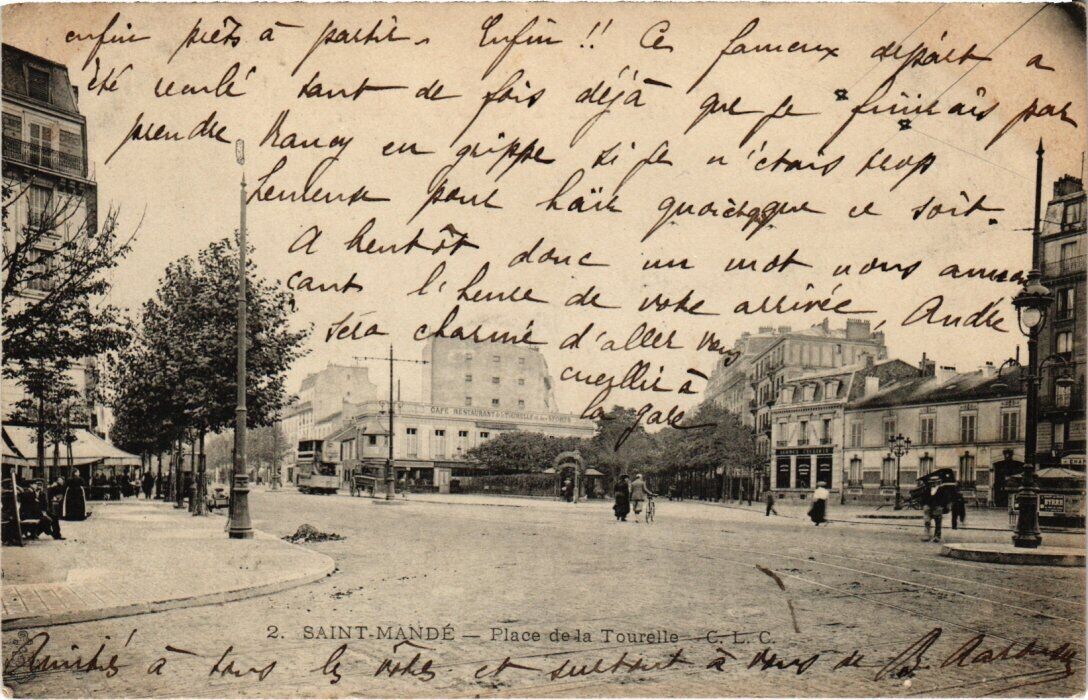 enfin prêts à partir. Enfin!! Ce fameux départ a
été reculé tant de fois déjà que je finirais par
prendre Nancy en grippe si je n'étais trop
heureux pour haïr quoique ce soit.
A bientôt donc un mot nous annon
çant l'heure de votre arrivée, André
sera charmé d'aller vous
cueillir à
la gare
CAFÉ RESTAURANT DE LA TOURELLE
BYRRH
2. SAINT-MANDÉ — Place de la Tourelle — C. L. C.
Amitiés à tous les vôtres et surtout à vous de